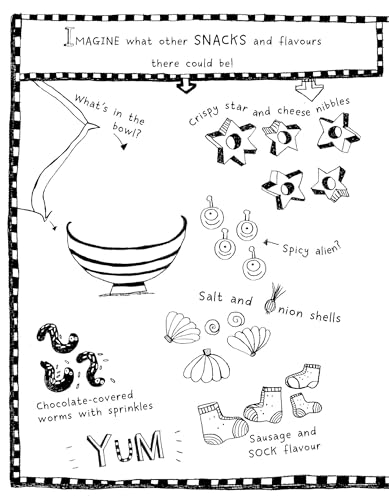 IMAGINE what other SNACKS and flavours
there could be!
What's in the
bowl?
Crispy star and cheese nibbles
Spicy alien?
Salt and nion shells
Chocolate-covered
worms with sprinkles
Sausage and
SOCK flavour
YUM